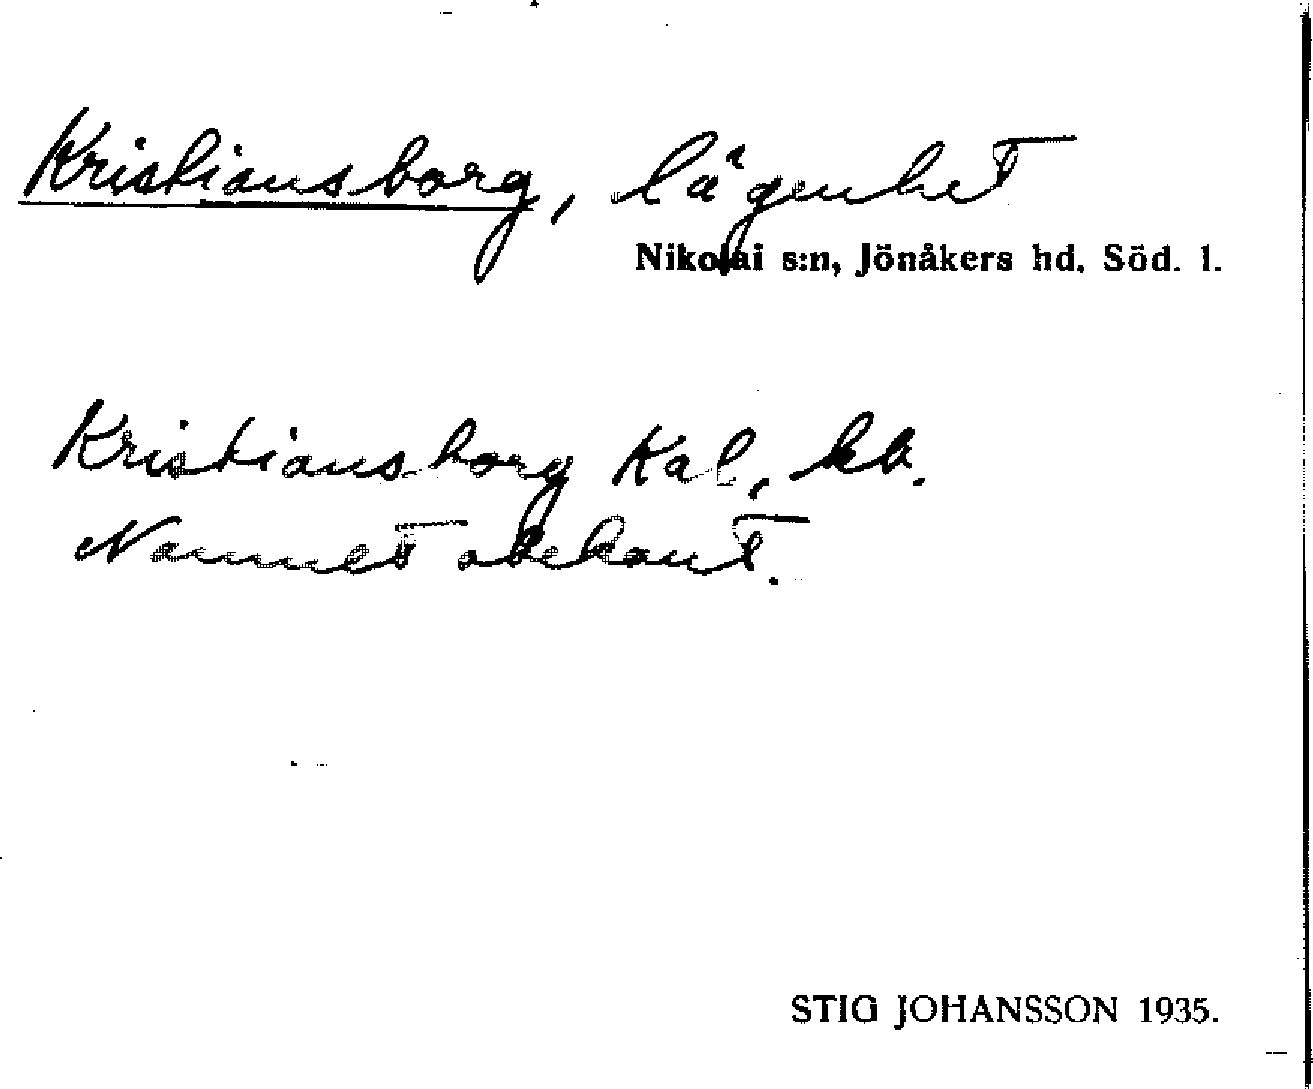 Kristiansborg, lägenhet
Nikolai s:n, Jönåkers hd, Söd. l.
Kristiansborg Kal, kb.
Namnet obekant.
STIG JOHANSSON 1935.